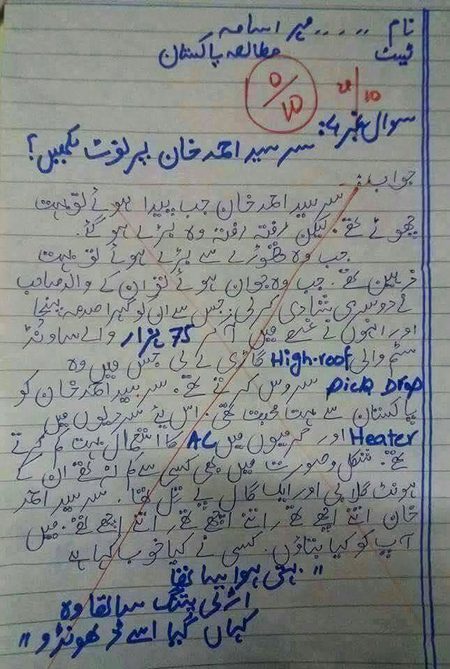 نام ..... میر اسامہ
ٹیسٹ مطالعہ پاکستان
0/10
28/10
سوال نمبر 4: سر سید احمد خان پر نوٹ لکھیں؟
جواب: سر سید احمد خان جب پیدا ہوئے تو بہت
چھوٹے تھے۔ لیکن رفتہ رفتہ وہ بڑے ہو گئے۔
جب وہ تھوڑے سے بڑے ہوئے تو بہت
ذہین تھے۔ جب وہ جوان ہوئے تو ان کے والد صاحب
نے دوسری شادی کر لی۔ جس سے ان کو گہرا صدمہ پہنچا
اور انہوں نے غصے میں آکر 75 ہزار والے ساونڈ
سسٹم والی High-roof گاڑی لے لی جس میں وہ
Pick Drop سروس کرتے تھے۔ سر سید احمد خان کو
پاکستان سے بہت محبت تھی۔ اس لیے سردیوں میں
Heater اور گرمیوں میں AC کا استعمال بہت کم کرتے
تھے۔ شکل و صورت میں بھی کسی سے کم نہ تھے ان کے
ہونٹ گلابی اور ایک گال پے تل تھا۔ سر سید احمد
خان اتنے اچھے تھے، اتنے اچھے تھے، اتنے اچھے تھے۔ میں
آپ کو کیا بتاؤں۔ کسی نے کیا خوب کہا ہے
"بہتی ہوا سا تھا
اڑتی پتنگ سا تھا وہ
کہاں گیا اسے ڈھونڈو"